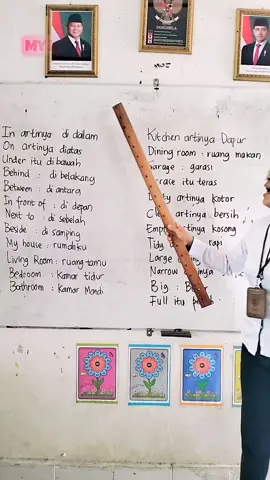 MY
PANCASILA
In artinya di dalam
On artinya diatas
Under itu di bawah
Behind : di belakang
Between : di antara
In front of : di depan
Next to : di sebelah
Beside : di samping
My house : rumahku
Living Room : ruang tamu
Bedroom : Kamar tidur
Bathroom : Kamar Mandi
Kitchen artinya Dapur
Dining room : ruang makan
garasi
itu teras
artinya kotor
artinya bersih
artinya kosong
Tidy rapi
Large
Narrow
Big :
Full itu